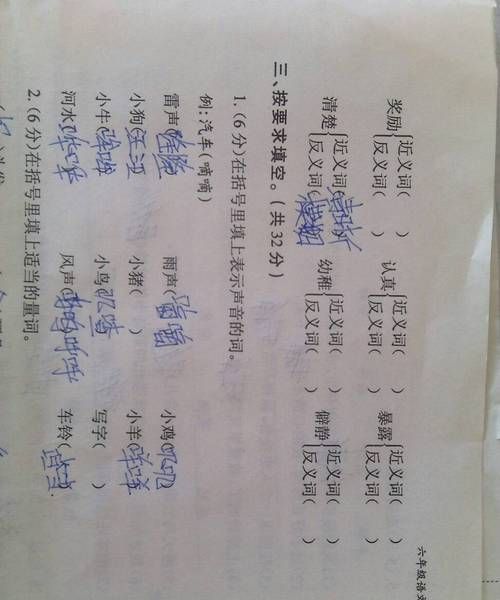 六年级语文
奖励{近义词( ) 反义词( ) 认真{近义词( ) 反义词( ) 暴露{近义词( ) 反义词( )
清楚{近义词(清晰) 反义词(模糊) 幼稚{近义词( ) 反义词( ) 僻静{近义词( ) 反义词( )
三、按要求填空。(共32分)
1.(6分)在括号里填上表示声音的词。
例:汽车(嘀嘀)
雷声(隆隆) 雨声( 小鸡(叽叽)
小狗(汪汪) 小猪( ) 小羊(咩咩)
小牛( 小鸟( 写字( )
河水(哗哗 风声( 车铃(
2.(6分)在括号里填上适当的量词。